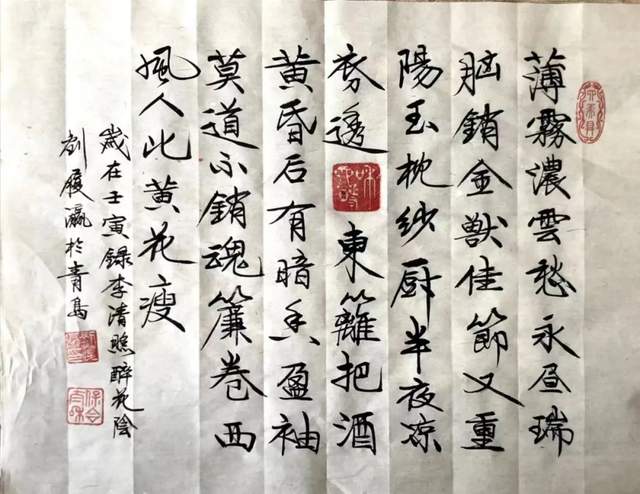 薄霧濃雲愁永昼瑞
脑銷金獸佳節又重
陽玉枕纱厨半夜凉
透 東籬把酒
黄昏后有暗香盈袖
莫道不銷魂簾卷西
風人比黄花瘦
歲在壬寅録李清照醉花陰
劉履瀛於青島